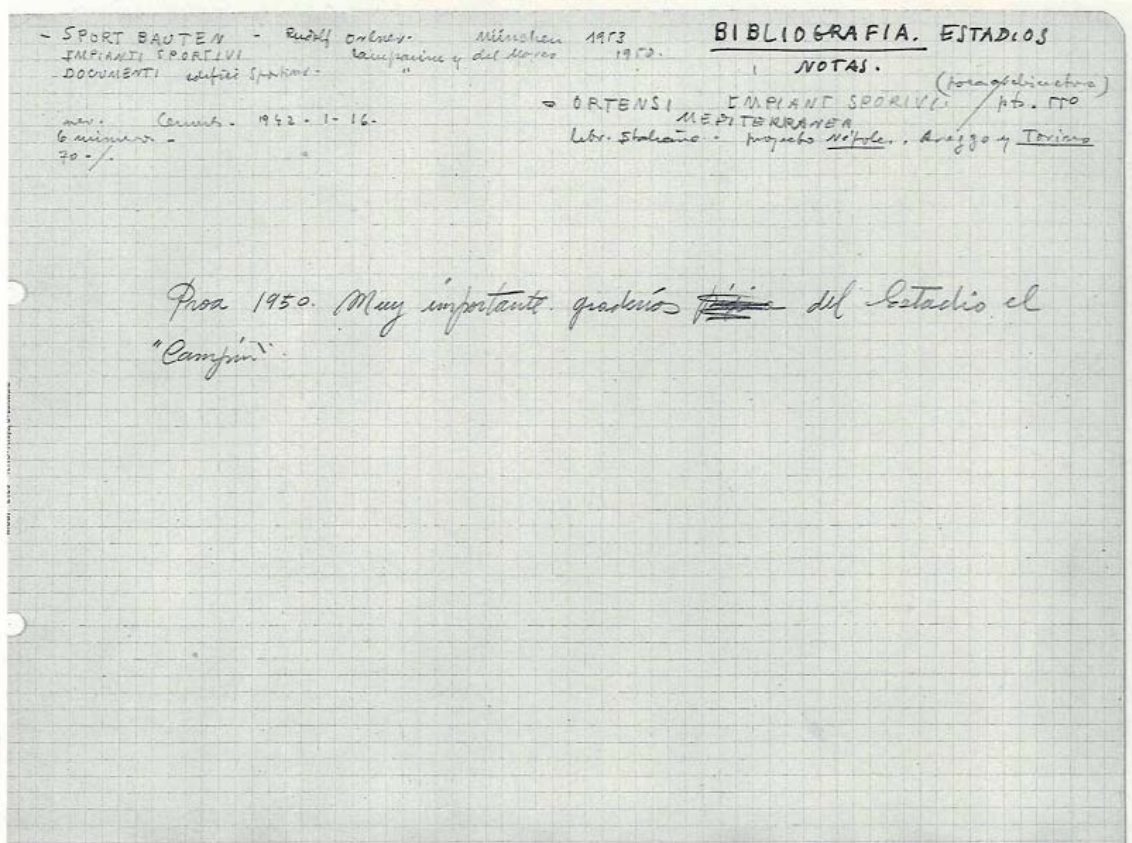 - SPORT BAUTEN - Rudolf Ortner. München 1953
IMPIANTI SPORTIVI Campanini y del Moro 1950.
DOCUMENTI edifici Sportivi. "
Cement. 1942 - 1 - 16.
6 números -
70 -/.
BIBLIOGRAFIA. ESTADIOS
NOTAS.
(poca arquitectura)
ORTENSI IMPIANT SPORIVI pts. 550
MEDITERRANEA
libr. Italiano - proyecto Nápole, Arezzo y Torino
Proa 1950. Muy importante. graderíos del Estadio el
"Campín".